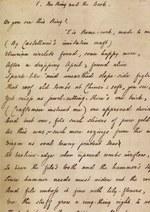 I. The Ring and the Book.
Do you see this Ring?
'Tis Rome-work, made to
(By Castellani's imitative craft)
Etrurian circlets found, some happy morn,
After a dropping April; found alive
Spark-like 'mid unearthed slope-side figtree
That roof old tombs at Chiusi: soft, you see,
Yet crisp as jewel-cutting. There's one trick,
(Craftsmen instruct me) one approved device
And but one, fits such slivers of pure gold
As this was, such mere oozings from the
Virgin as oval tawny pendent tear
At beehive-edge when ripened combs
To bear the file's tooth and the hammer's
Since hammer needs must widen out the round
And file emboss it fine with lily-flowers,
Ere the stuff grow a ring-thing right to